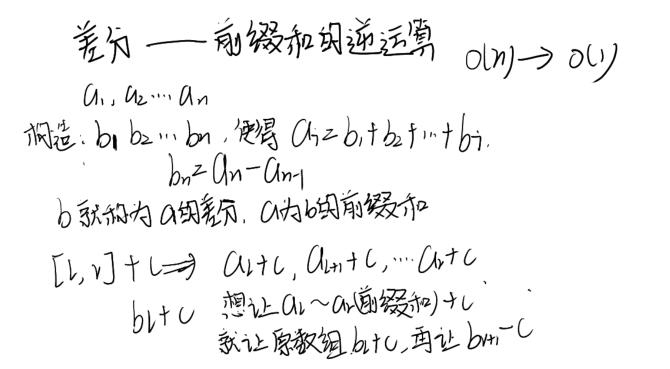 差分——前缀和的逆运算 O(n)→O(1)
a₁, a₂…aₙ
构造: b₁ b₂…bₙ, 使得 aᵢ=b₁+b₂+…+bᵢ.
bₙ=aₙ-aₙ₋₁
b就称为a的差分, a为b的前缀和
[l,r]+c⇒ a_l+c, a_{l+1}+c,…a_r+c
b_l+c 想让a_l~a_r(前缀和)+c
就让原数组b_l+c,再让b_{r+1}-c